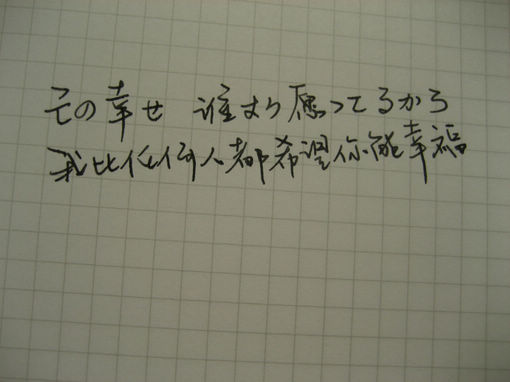 その幸せ 谁より愿ってるから
我比任何人都希望你能幸福